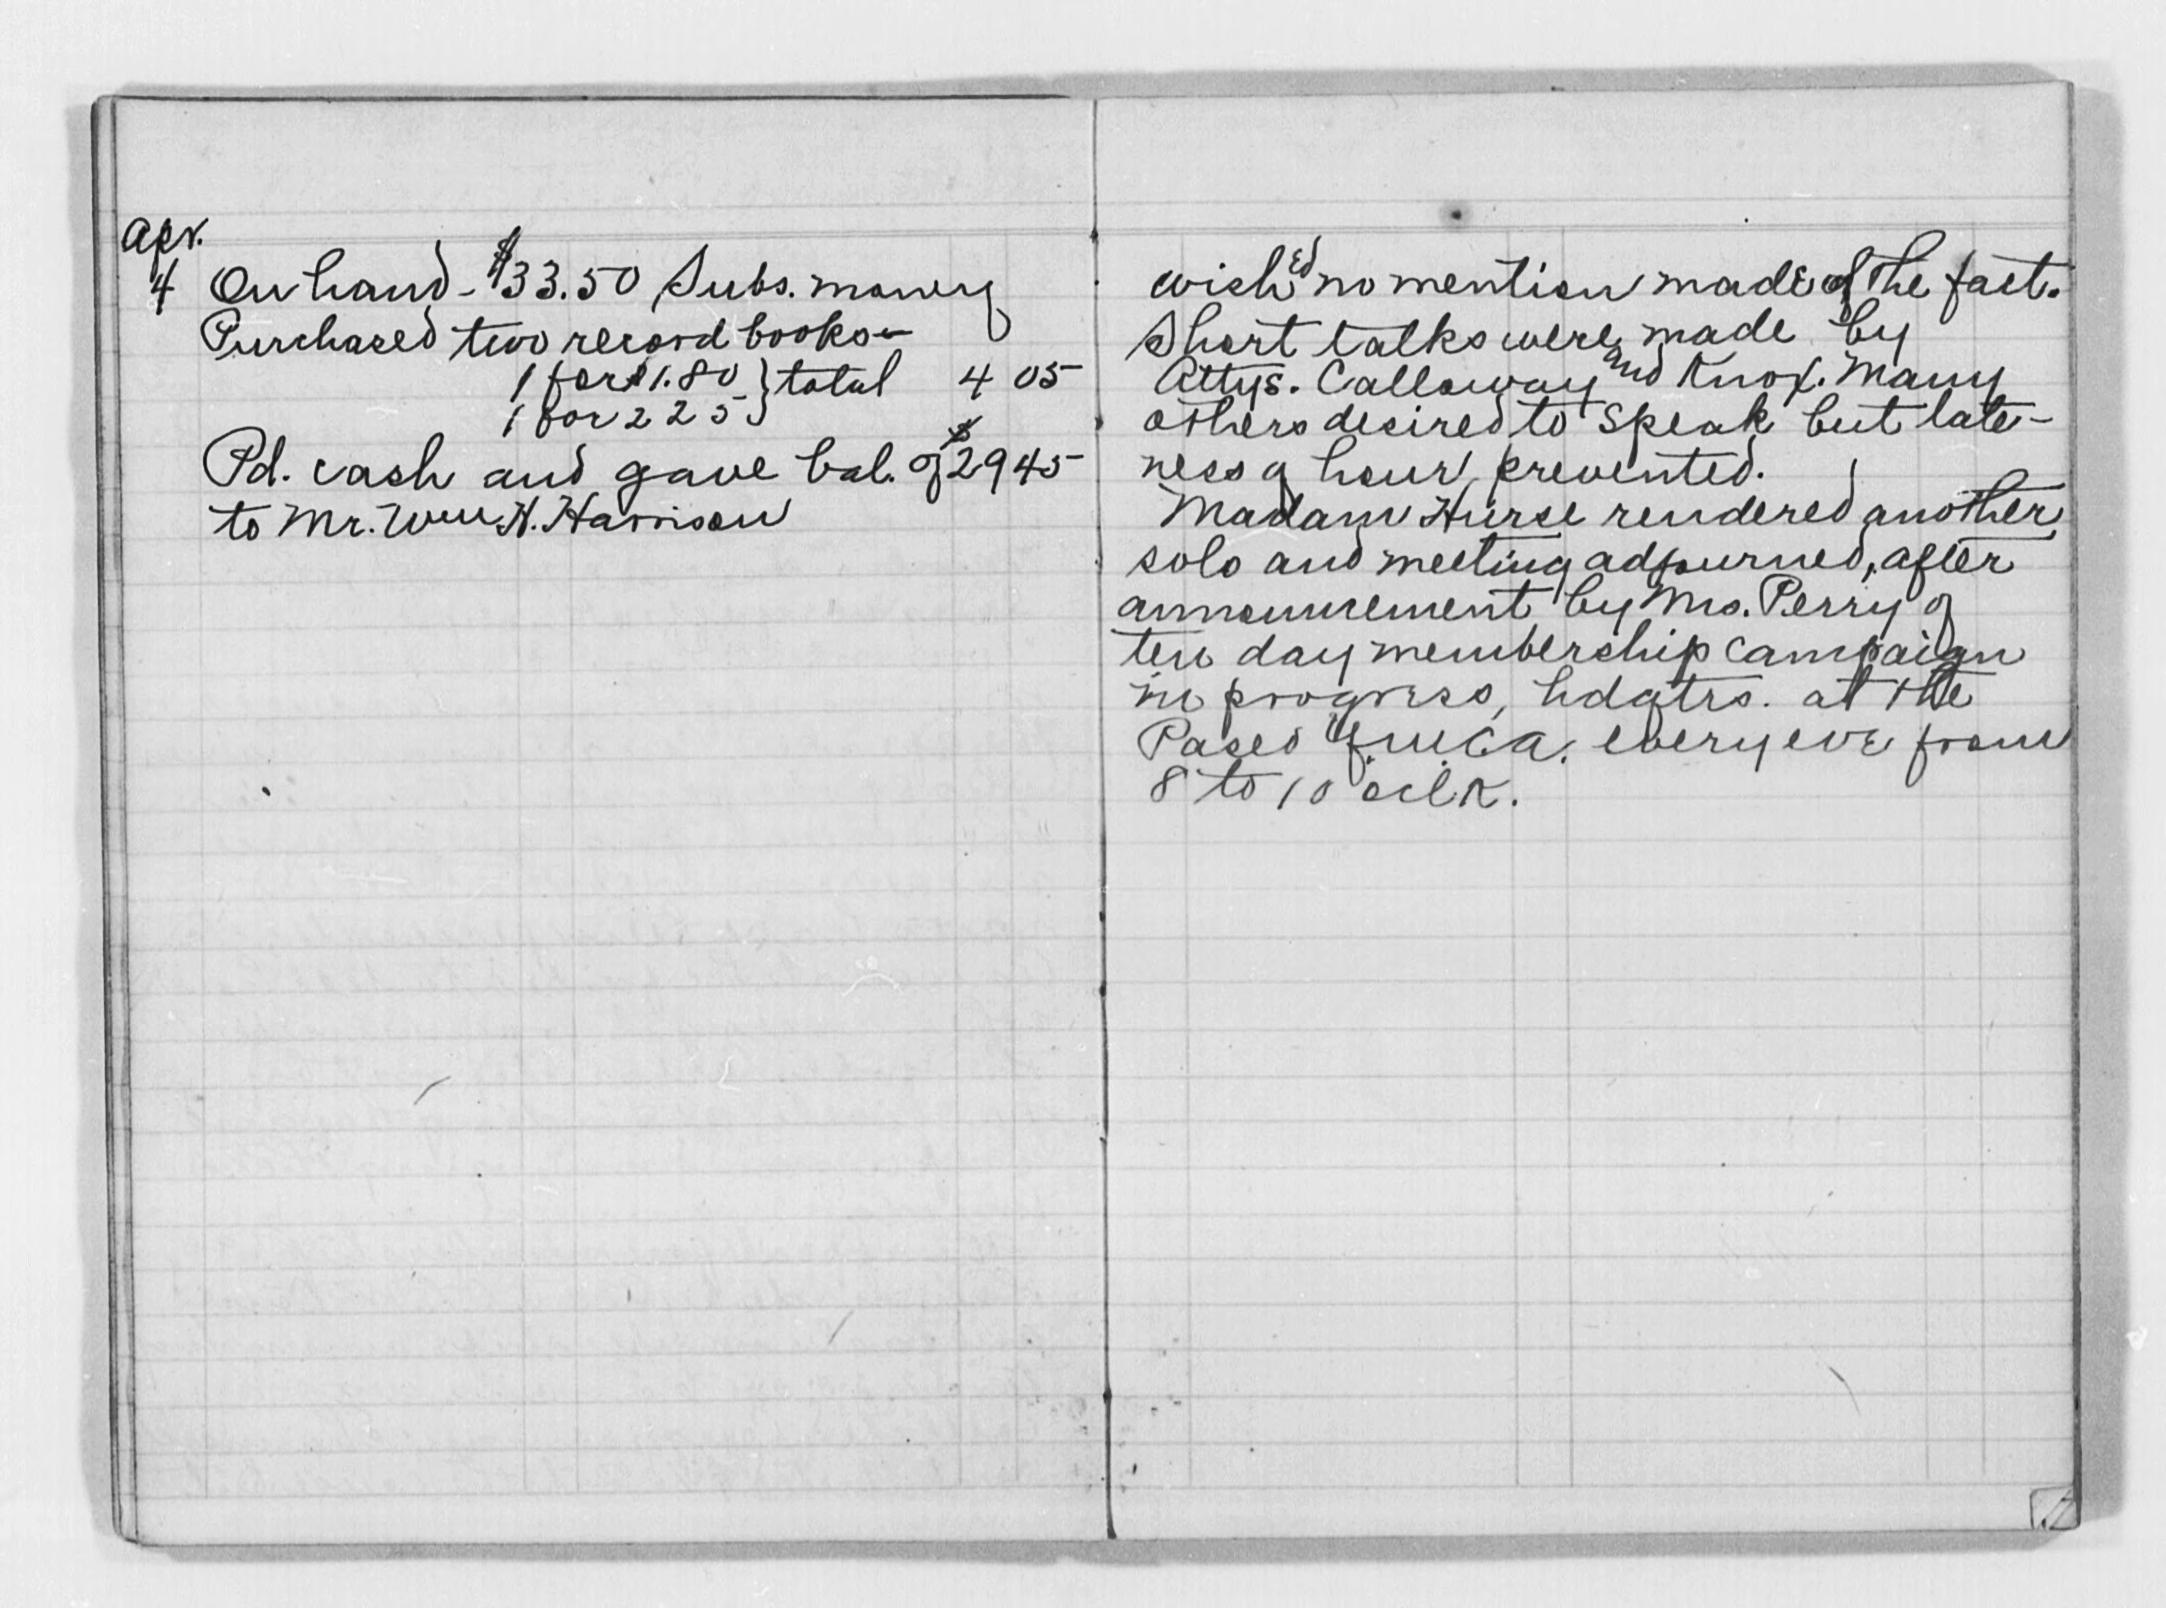 Apr.
4 On hand - $33.50 Subs. money
Purchased two record books -
1 for $1.80 } total 4 05
1 for 2 25
Pd. cash and gave bal. of $29 45
to Mr. Wm. H. Harrison
wished no mention made of the fact.
Short talks were made by
Attys. Calloway and Knox. Many
others desired to speak but late-
ness of hour prevented.
Madam Hurse rendered another
solo and meeting adjourned, after
announcement by Mrs. Perry of
ten day membership campaign
in progress, hdqtrs. at the
Paseo Y.M.C.A. every eve from
8 to 10 oclk.